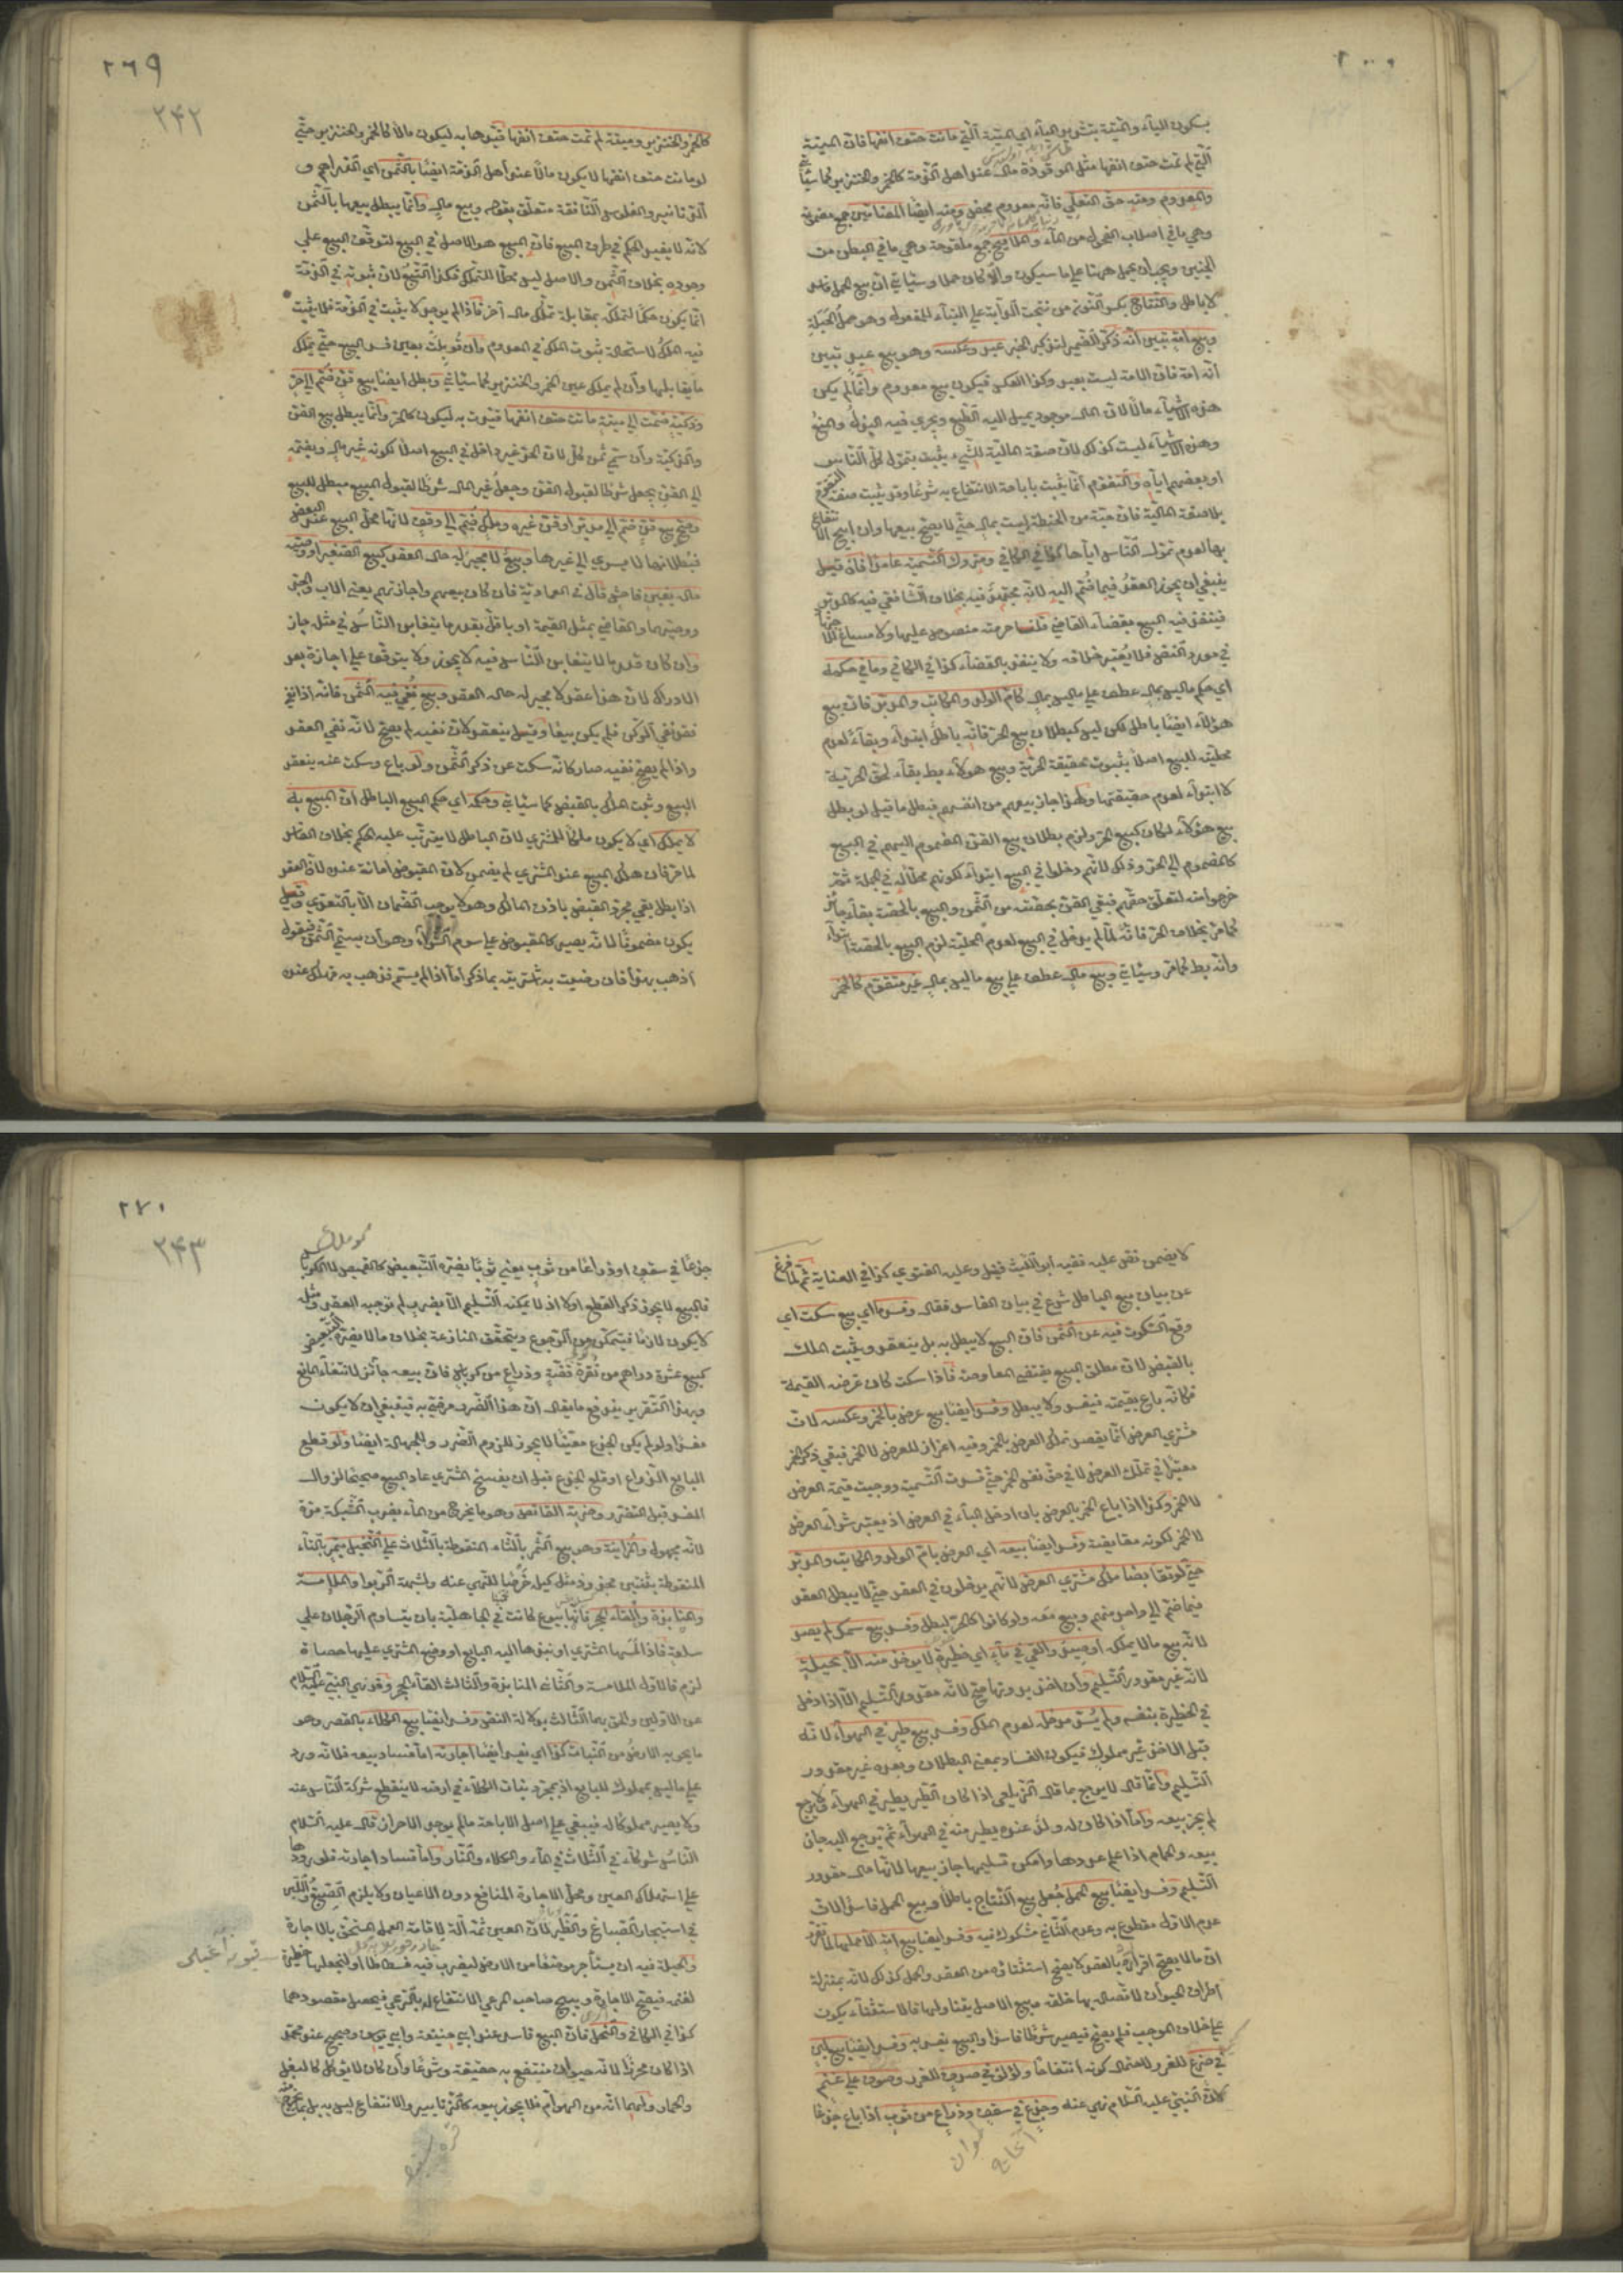 بسكون الياء والميتة بتشديد الياء اي الميتة التي ماتت حتف انفها فان الميتة
التي لم تمت حتف انفها مثل الموقوذة مال عند اهل الذمة كالخمر والخنزير كما سيأتي
والمعدوم ومنه حق التعلي فانه معدوم محض ومنه ايضا المضامين جمع مضمونة
وهي ما في اصلاب الفحول من الماء والملاقيح جمع ملقوحة وهي ما في البطن من
الجنين ويجب ان يحمل ههنا على ما سيكون والا كان حملا وسيأتي ان بيع الحمل فاسد
لا باطل والنتاج بكسر النون من نتجت الدابة على البناء للمفعول وهو حمل الحبلة
وبيع امة تبين انه ذكر الضمير لتذكير الخبر عبد وعكسه وهو بيع عبد تبين
انه امة فان الامة ليست بعبد وكذا العكس فيكون بيع معدوم وانما لم يكن
هذه الاشياء مالا لان المال موجود يميل اليه الطبع ويجري فيه البذل والمنع
وهذه الاشياء ليست كذلك لان صفة المالية للشيء يثبت بتمول كل الناس
او بعضهم اياه والتقوم انما يثبت باباحة الانتفاع به شرعا وقد يثبت صفة التقوم
بلا صفة المالية فان حبة من الحنطة ليست بمال حتى لا يصح بيعها وان ابيح الانتفاع
بها لعدم تمول الناس اياها كذا في الكافي ومتروك التسمية عامدا فان قيل
ينبغي ان يجوز العقد فيما ضم اليه لانه مجتهد فيه بخلاف الشافعي فيه كالمدبر
فينفذ فيه البيع بقضاء القاضي قلنا حرمته منصوص عليها ولا مساغ للاجتهاد
في مورد النص فلا يعتبر خلافه ولا ينفذ بالقضاء كذا في الكافي وما في حكمه
اي حكم ما ليس بمال عطف على ما ليس بمال كام الولد والمكاتب والمدبر فان بيع
هؤلاء ايضا باطل لكن ليس كبطلان بيع الحر فانه باطل ابتداء وبقاء لعدم
محلية للبيع اصلا بثبوت حقيقة الحرية وبيع هؤلاء بطل بقاء لحق الحرية
لا ابتداء لعدم حقيقتها ولهذا جاز بيعهم من انفسهم فبطل ما قيل لو بطل
بيع هؤلاء لكان كبيع الحر ولزم بطلان بيع القن المضموم اليهم في البيع
كالمضموم الى الحر وذلك لانهم دخلوا في البيع ابتداء لكونهم محلا له في الجملة ثم
خرجوا منه لتعلق حقهم فبقي القن بحصته من الثمن والبيع بالحصة بقاء جائز
كما مر بخلاف الحر فانه لما لم يدخل في البيع لعدم المحلية لزم البيع بالحصة ابتداء
وانه بطل كما مر وسيأتي وبيع مال عطف على بيع ما ليس بمال غير متقوم كالخمر
٢٦٩
٢٤٢
كالخمر والخنزير وميتة لم تمت حتف انفها قيدوها به ليكون مالا كالخمر والخنزير حتى
لو ماتت حتف انفها لا يكون مالا عند اهل الذمة ايضا بالثمن اي الدراهم و
الدنانير والفلوس النافقة متعلق بقوله وبيع مال وانما يبطل بيعها بالثمن
لانه لا يفيد الحكم في طرف المبيع فان المبيع هو الاصل في البيع لتوقف البيع على
وجوده بخلاف الثمن والاصل ليس محلا للتملك فكذا التبع لان ثبوته في الذمة
انما يكون حكما لتملكه بمقابلة تملك مال آخر فاذا لم يوجد لا يثبت في الذمة فلا يثبت
فيه الملك لاستحالة ثبوت الملك في المعدوم وان قوبلت بعين فسد البيع حتى يملك
ما يقابلها وان لم يملك عين الخمر والخنزير كما سيأتي وبطل ايضا بيع قن ضم الى حر
وذكية ضمت الى ميتة ماتت حتف انفها قيدت به ليكون كالحر وانما يبطل بيع القن
والذكية وان سمي ثمن كل لان الحر غير داخل في البيع اصلا لكونه غير مال وبضمه
الى القن يجعل شرطا لقبول القن وجعل غير المال شرطا لقبول المبيع مبطل للبيع
وصح بيع قن ضم الى مدبر او قن غيره وملك ضم الى وقف لانها محل البيع عند البعض
فبطلانها لا يسري الى غيرها وبيع لا مجيز له حال العقد كبيع الصغير او وصيه
ماله بغبن فاحش قال في العمادية فان كان بيعهم واجازتهم يعني الاب والجد
ووصيهما والقاضي بمثل القيمة او باقل بقدر ما يتغابن الناس في مثله جاز
وان كان قدر ما لا يتغابن الناس فيه لا يجوز ولا يتوقف على اجازة بعد
الادراك لان هذا عقد لا مجيز له حال العقد وبيع نفي فيه الثمن فانه اذا نفي
فقد نفي الركن فلم يكن بيعا وقيل ينعقد لان نفيه لم يصح لانه نفي العقد
واذا لم يصح نفيه صار كانه سكت عن ذكر الثمن ولو باع وسكت عنه ينعقد
البيع وثبت الملك بالقبض كما سيأتي وحكمه اي حكم البيع الباطل ان المبيع به
لا يملك اي لا يكون ملكا للمشتري لان الباطل لا يترتب عليه الحكم بخلاف الفاسد
لما مر فان هلك المبيع عند المشتري لم يضمن لان المقبوض امانة عنده لان العقد
اذا بطل بقي مجرد القبض باذن المالك وهو لا يوجب الضمان الا بالتعدي وقيل
يكون مضمونا لانه يصير كالمقبوض على سوم الشراء وهو ان يسمي الثمن فيقول
اذهب بهذا فان رضيت به اشتريته بما ذكر اما اذا لم يسم فذهب به فهلك عنده
لا يضمن نص عليه الفقيه ابو الليث قيل وعليه الفتوى كذا في العناية ثم لما فرغ
عن بيان بيع الباطل شرع في بيان الفاسد فقال وفسد اي بيع سكت اي
وقع السكوت فيه عن الثمن فان البيع لا يبطل به بل ينعقد ويثبت الملك
بالقبض لان مطلق البيع يقتضي المعاوضة فاذا سكت كان غرضه القيمة
فكانه باع بقيمته فيفسد ولا يبطل وفسد ايضا بيع عرض بالخمر وعكسه لان
مشتري العرض انما يقصد تملك العرض بالخمر وفيه اعزاز للعرض لا الخمر فبقي ذكر الخمر
معتبرا في تملك العرض لا في حق نفس الخمر حتى فسدت التسمية ووجبت قيمة العرض
لا الخمر وكذا اذا باع الخمر بالعرض بان ادخل الباء في العرض اذ يعتبر شراء العرض
لا الخمر لكونه مقايضة وفسد ايضا بيعه اي العرض بام الولد والمكاتب والمدبر
حتى لو تقابضا ملك مشتري العرض لانهم يدخلون في العقد حتى لا يبطل العقد
فيما ضم الى واحد منهم وبيع معه ولو كانوا كالحر لبطل وفسد بيع سمك لم يصد
لانه بيع ما لا يملكه او صيد والقي في ماء اي حظيرة لا يؤخذ منه الا بحيلة
لانه غير مقدور التسليم وان اخذ بدونها صح لانه مقدور التسليم الا اذا دخل
في الحظيرة بنفسه ولم يسد مدخله لعدم الملك وفسد بيع طير في الهواء لانه
قبل الاخذ غير مملوك فيكون الفساد بمعنى البطلان وبعده غير مقدور
التسليم وانما قال لا يرجع لما قال الزيلعي اذا كان الطير يطير في الهواء ولا يرجع
لم يجز بيعه واما اذا كان له وكر عنده يطير منه في الهواء ثم يرجع اليه جاز
بيعه والحمام اذا علم عودها وامكن تسليمها جاز بيعها لانها مال مقدور
التسليم وفسد ايضا بيع الحمل جعل بيع النتاج باطلا وبيع الحمل فاسدا لان
عدم الاول مقطوع به وعدم الثاني مشكوك فيه وفسد ايضا بيع امة الا حملها لما تقرر
ان ما لا يصح افراده بالعقد لا يصح استثناؤه من العقد والحمل كذلك لانه بمنزلة
اطراف الحيوان لاتصاله بها خلقة وبيع الاصل يتناولها فالاستثناء يكون
على خلاف الموجب فلم يصح فيصير شرطا فاسدا والبيع يفسد به وفسد ايضا بيع لبن
في ضرع للغرر لاحتمال كونه انتفاخا ولؤلؤ في صدف للغرر وصوف على غنم
لان النبي عليه السلام نهى عنه وجذع في سقف وذراع من ثوب اذا باع جذعا
٢٧٠
٢٤٣
جذعا في سقف او ذراعا من ثوب يعني ثوبا يضره التبعيض كالقميص لا الكرباس
فالبيع لا يجوز ذكر القطع اولا اذ لا يمكنه التسليم الا بضرر لم يوجبه العقد ومثله
لا يكون لازما فيتمكن من الرجوع ويتحقق المنازعة بخلاف ما لا يضره التبعيض
كبيع عشرة دراهم من نقرة فضة وذراع من كرباس فان بيعه جائز لانتفاء المانع
وبهذا التقرير يندفع ما يقال ان هذا الضرر مرضي به فينبغي ان لا يكون
مفسدا ولو لم يكن الجذع معينا لا يجوز للزوم الضرر وللجهالة ايضا ولو قطع
البايع الذراع او قلع الجذع قبل ان يفسخ المشتري عاد البيع صحيحا لزوال
المفسد قبل التقرر وضربة القانص وهو ما يخرج من الماء بضرب الشبكة مرة
لانه مجهول والمزابنة وهو بيع الثمر بالثاء المنقوطة بالثلاث على النخيل بتمر بالتاء
المنقوطة بثنتين مجذوذ مثل كيله خرصا للنهي عنه ولشبهة الربوا والملامسة
والمنابذة والقاء الحجر فانها بيوع كانت في الجاهلية بان يتساوم الرجلان على
سلعة فاذا لمسها المشتري او نبذها اليه البايع او وضع المشتري عليها حصاة
لزم فالاول الملامسة والثاني المنابذة والثالث القاء الحجر وقد نهى النبي عليه السلام
عن الاولين والحق بهما الثالث بدلالة النص وفسد ايضا بيع الكلاء بالقصر وهو
ما يحويه الارض من النبات كذا اي فسد ايضا اجارته اما فساد بيعه فلانه ورد
على ما ليس بمملوك للبايع اذ بمجرد نبات الكلاء في ارضه لا ينقطع شركة الناس عنه
ولا يصير مملوكا له فيبقى على اصل الاباحة ما لم يوجد الاحراز قال عليه السلام
الناس شركاء في الثلاث في الماء والكلاء والنار واما فساد اجارته فلورودها
على استهلاك العين ومحل الاجارة المنافع دون الاعيان ولا يلزم الصبغ واللبن
في استيجار الصباغ والظئر لان العين ثمه آلة لاقامة العمل المستحق بالاجارة
والحيلة فيه ان يستأجر موضعا من الارض ليضرب فيه فسطاطا او ليجعلها حظيرة
لغنمه فيصح الاجارة ويبيح صاحب المرعى الانتفاع له بالرعي فيحصل مقصودهما
كذا في الكافي والنحل فان البيع فاسد عند ابي حنيفة وابي يوسف وصحيح عند محمد
اذا كان محرزا لانه حيوان منتفع به حقيقة وشرعا وان كان لا يؤكل كالبغل
والحمار ولهما انه من الهوام فلا يجوز بيعه كالزنابير والانتفاع ليس به بل بما يخرج منه